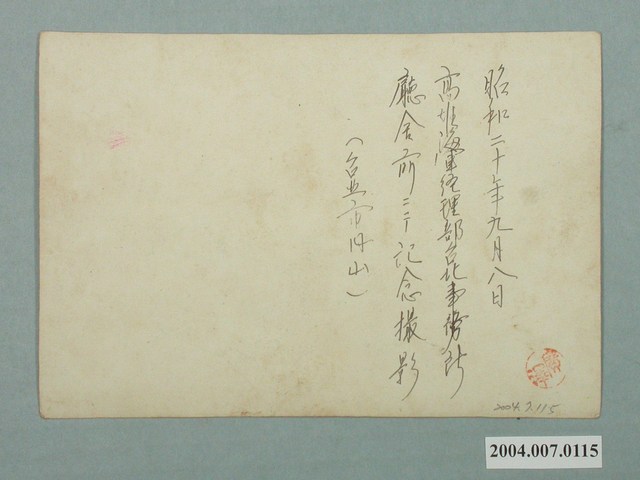 昭和二十年九月八日
高雄海軍経理部台北事務所
廳舎前ニテ記念撮影
(台北市円山)
2004.7.115
2004.007.0115